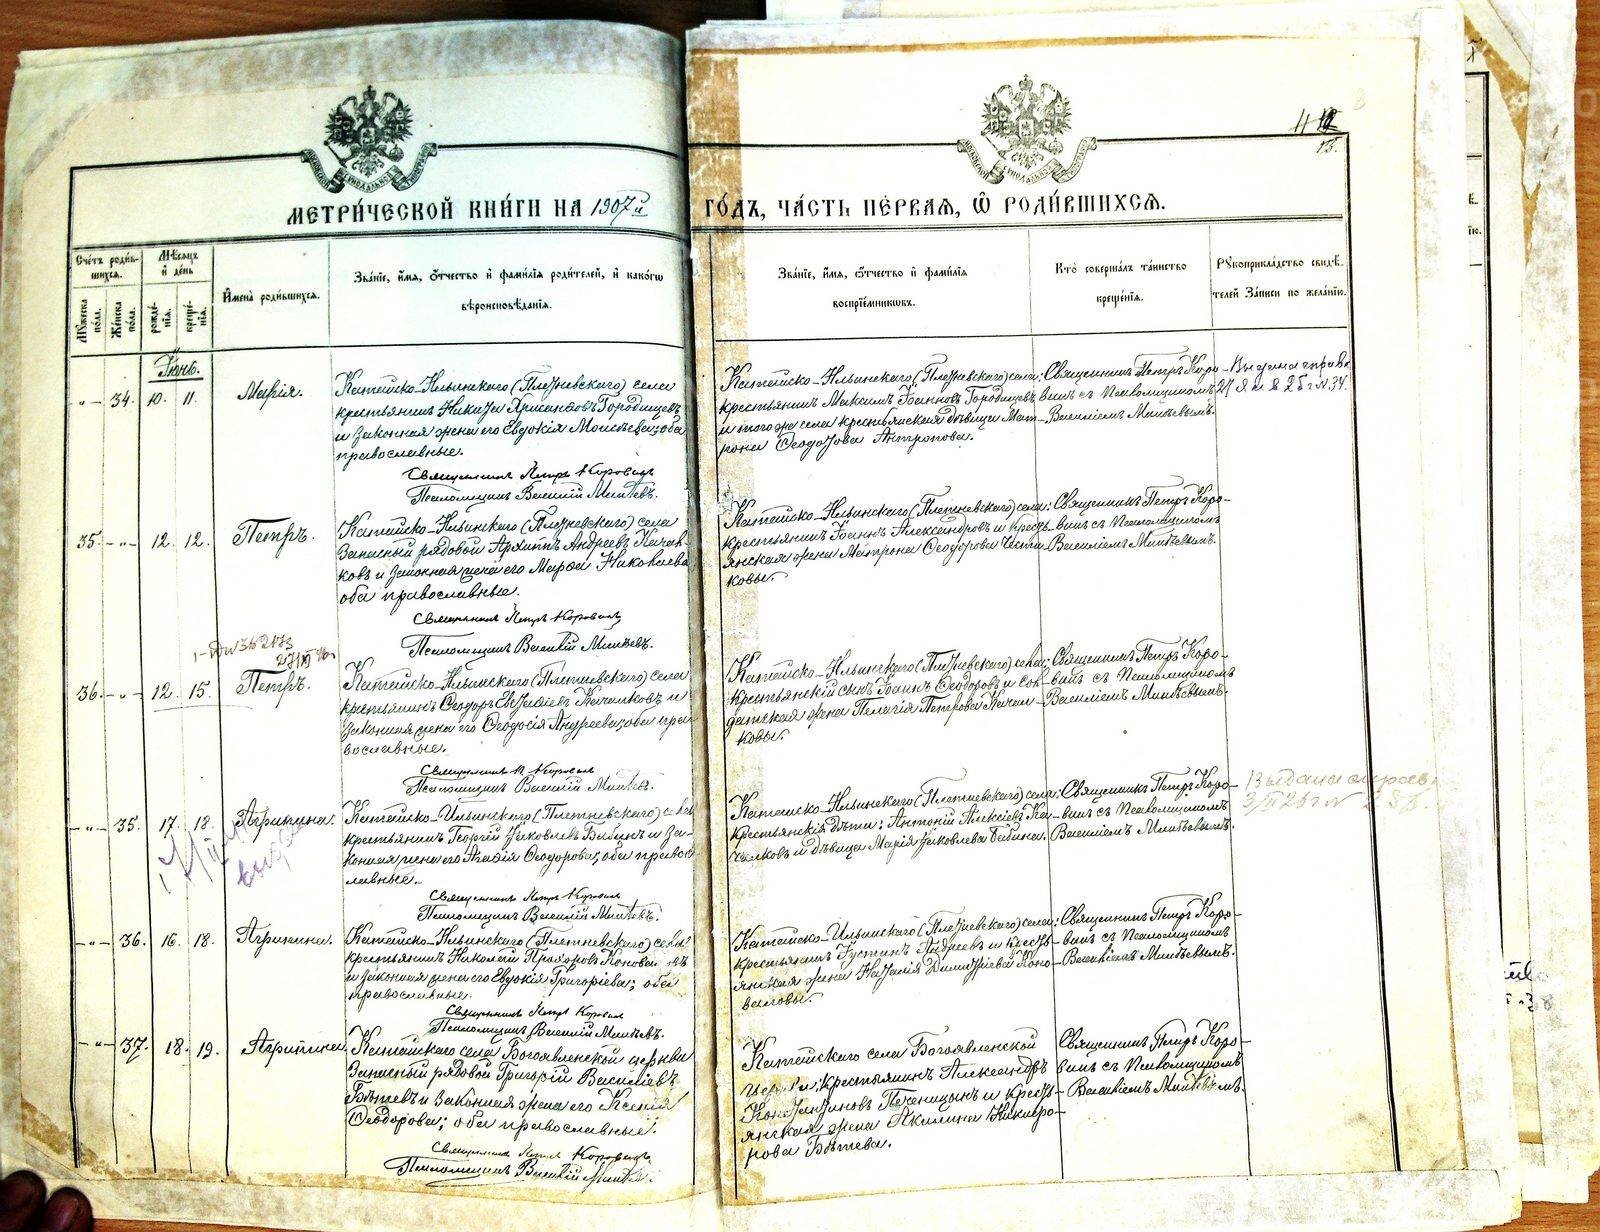 МЕТРИ́ЧЕСКОЙ КНИ́ГИ НА 1907й ГО́ДЪ, ЧА́СТЬ ПЕ́РВАЯ, Ѡ РОДИ́ВШИХСЯ.
Сче́тъ роди́в-
шихся.
Му́жеска по́ла.
Же́нска по́ла.
Мѣсяцъ
и день
рожде́-
нія.
креще́-
нія.
Имена̀ роди́вшихся.
Зва́ніе, и́мя, о́тчество и фами́лія роди́телей, и како́гѡ
вѣроисповѣ́данія.
Зва́ніе, и́мя, о́тчество и фами́лія
воспріе́мниковъ.
Кто̀ соверша́лъ та́инство
креще́нія.
Рукоприкла́дство свидѣ́-
телей За́писи по жела́нію.
Іюнь.
-"- 34. 10. 11. Марія.
Катайско-Ильинскаго (Плетневскаго) села
крестьянинъ Никита Хрисанфовъ Городищевъ
и законная жена его Евдокія Моисеева; оба
православные.
Священникъ Петръ Коровинъ
Псаломщикъ Василій Мит
Катайско-Ильинскаго (Плетневскаго) села:
крестьянинъ Максимъ Іоанновъ Городищевъ
и того же села крестьянская дѣвица Мат-
рона Ѳеодотова Антропова.
Священникъ Петръ Коро-
винъ съ Псаломщикомъ
Василіемъ
Выдана справка
35. -"- 12. 12. Петръ.
Катайско-Ильинскаго (Плетневскаго) села
Запасный рядовой Архипъ Андреевъ Качал-
ковъ и законная жена его Марѳа Николаева
оба православные.
Священникъ Петръ Коровинъ
Псаломщикъ Василій
Катайско-Ильинскаго (Плетневскаго) села:
крестьянинъ Іоаннъ Александровъ и кресть-
янская жена Матрона Ѳеодорова Чисти-
ковы.
Священникъ Петръ Коро-
винъ съ Псаломщикомъ
Василіемъ
36. -"- 12. 15. Петръ.
Катайско-Ильинскаго (Плетневскаго) села
крестьянинъ Ѳеодоръ Качалковъ и
законная жена его Ѳеодосія Андреева; оба пра-
вославные.
Священникъ П. Коровинъ
Псаломщикъ Василій
Катайско-Ильинскаго (Плетневскаго) села:
крестьянскій сынъ Іоаннъ Ѳеодоровъ и сол-
датская жена Пелагія Петрова Качал-
ковы.
Священникъ Петръ Коро-
винъ съ Псаломщикомъ
Василіемъ
-"- 35. 17. 18. Агрипина.
Катайско-Ильинскаго (Плетневскаго) села
крестьянинъ Георгій Яковлевъ Бабинъ и за-
конная жена его Агаѳія Ѳеодорова; оба право-
славные.
Священникъ Петръ Коровинъ
Псаломщикъ Василій
Катайско-Ильинскаго (Плетневскаго) села:
крестьянскія дѣти: Антоній Алексіевъ Ка-
чалковъ и дѣвица Марія Яковлева Бабина.
Священникъ Петръ Коро-
винъ съ Псаломщикомъ
Василіемъ
Выдана справ
-"- 36. 16. 18. Агрипина.
Катайско-Ильинскаго (Плетневскаго) села
крестьянинъ Николай Прохоровъ Коноваловъ
и законная жена его Евдокія Григоріева; оба
православные.
Священникъ Петръ Коровинъ
Псаломщикъ Василій
Катайско-Ильинскаго (Плетневскаго) села:
крестьянинъ Іустинъ Андреевъ и кресть-
янская жена Наталія Димитріева Коно-
валовы.
Священникъ Петръ Коро-
винъ съ Псаломщикомъ
Василіемъ
-"- 37. 18. 19. Агрипина.
Катайскаго села Богоявленской церкви
Запасный рядовой Григорій Василіевъ
Бѣтевъ и законная жена его Ксенія
Ѳеодорова; оба православные.
Священникъ Петръ Коровинъ
Псаломщикъ Василій
Катайскаго села Богоявленской
церкви: крестьянинъ Александръ
Константиновъ Печеницынъ и кресть-
янская жена Акилина Никифо-
рова Бѣтева.
Священникъ Петръ Коро-
винъ съ Псаломщикомъ
Василіемъ